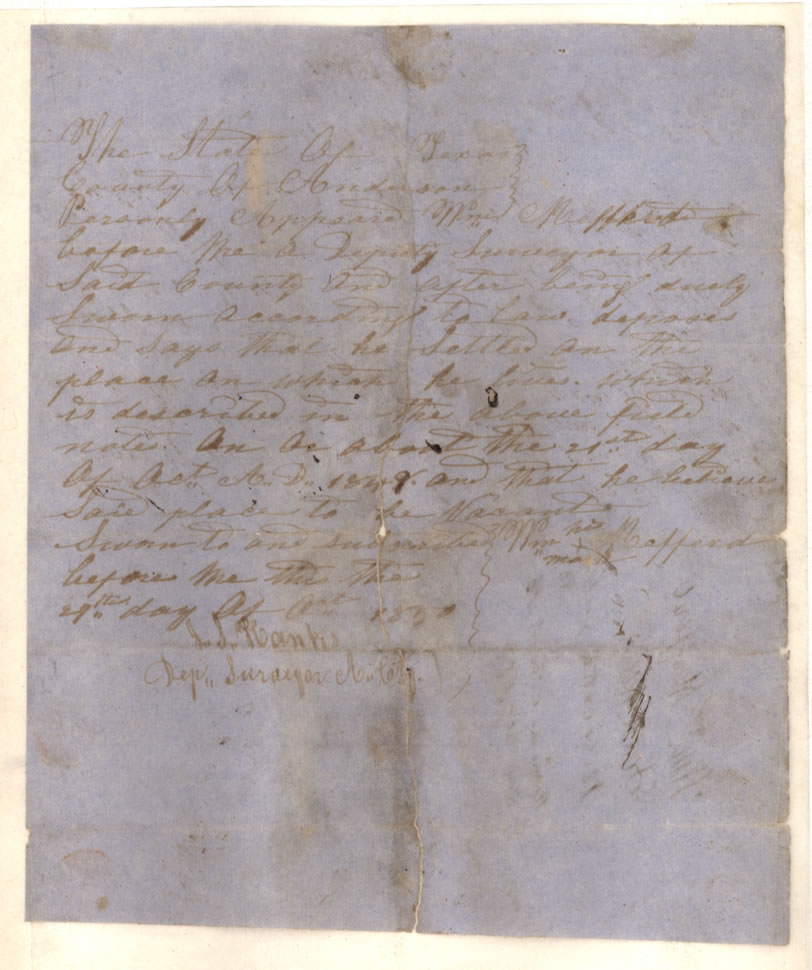 The State Of Texas
County Of Anderson
Personly Appeard Wm Mofferd
before Me a Deputy Surveyor of
Said County and after being duely
Sworn according to Law deposes
and Says that he Settled on the
place on which he lives. which
is described in the above field
notes on or about the 21st day
Of Oct. A.D. 1849. and that he believe
Said place to be Vacant
Sworn to and subscribed Wm his Mofferd
before Me this the mark
29th day Of Oct 1850
Hanks
Dep. Surveyor A. Cty.